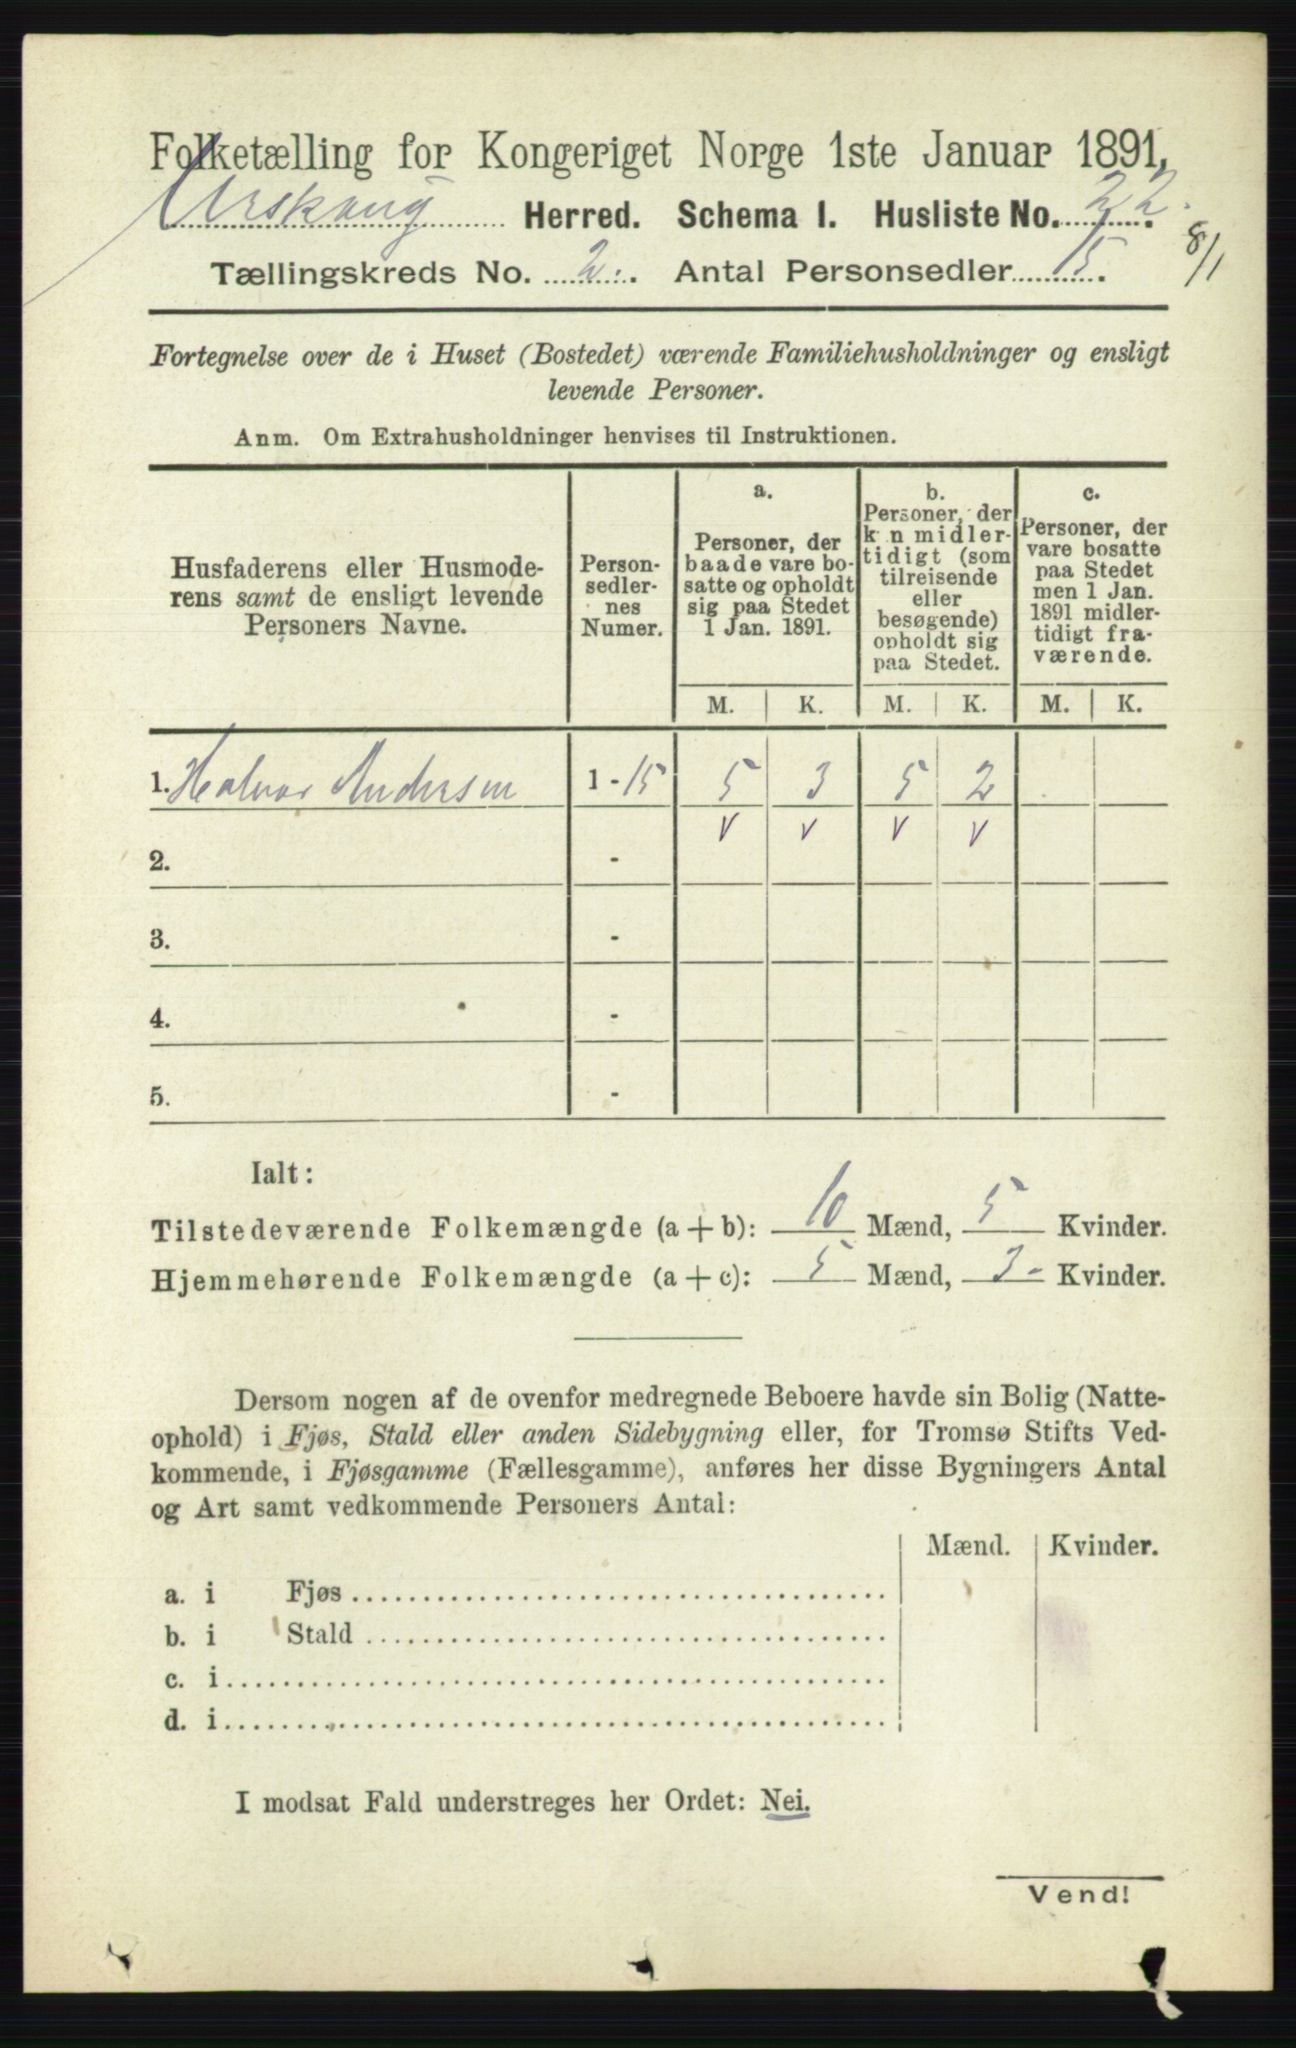 Folketælling for Kongeriget Norge 1ste Januar 1891.
Urskoug Herred. Schema I. Husliste No. 22.
8/1
Tællingskreds No. 2. Antal Personsedler 15.
Fortegnelse over de i Huset (Bostedet) værende Familiehusholdninger og ensligt
levende Personer.
Anm. Om Extrahusholdninger henvises til Instruktionen.
Husfaderens eller Husmode-
rens samt de ensligt levende
Personers Navne.
Person-
sedler-
nes
Numer.
a.
Personer, der
baade vare bo-
satte og opholdt
sig paa Stedet
1 Jan. 1891.
b.
Personer, der
k n midler-
tidigt (som
tilreisende
eller
besøgende)
opholdt sig
paa Stedet.
c.
Personer, der
vare bosatte
paa Stedet
men 1 Jan.
1891 midler-
tidigt fra-
værende.
M. K. M. K. M. K.
1. Halvor Andersen 1 - 15 5 3 5 2
v v v v
2. -
3. -
4. -
5. -
Ialt:
Tilstedeværende Folkemængde (a + b): 10 Mænd, 5 Kvinder.
Hjemmehørende Folkemængde (a + c): 5 Mænd, 3 - Kvinder.
Dersom nogen af de ovenfor medregnede Beboere havde sin Bolig (Natte-
ophold) i Fjøs, Stald eller anden Sidebygning eller, for Tromsø Stifts Ved-
kommende, i Fjøsgamme (Fællesgamme), anføres her disse Bygningers Antal
og Art samt vedkommende Personers Antal:
Mænd. Kvinder.
a. i Fjøs
b. i Stald
c. i
d. i
I modsat Fald understreges her Ordet: Nei.
Vend!